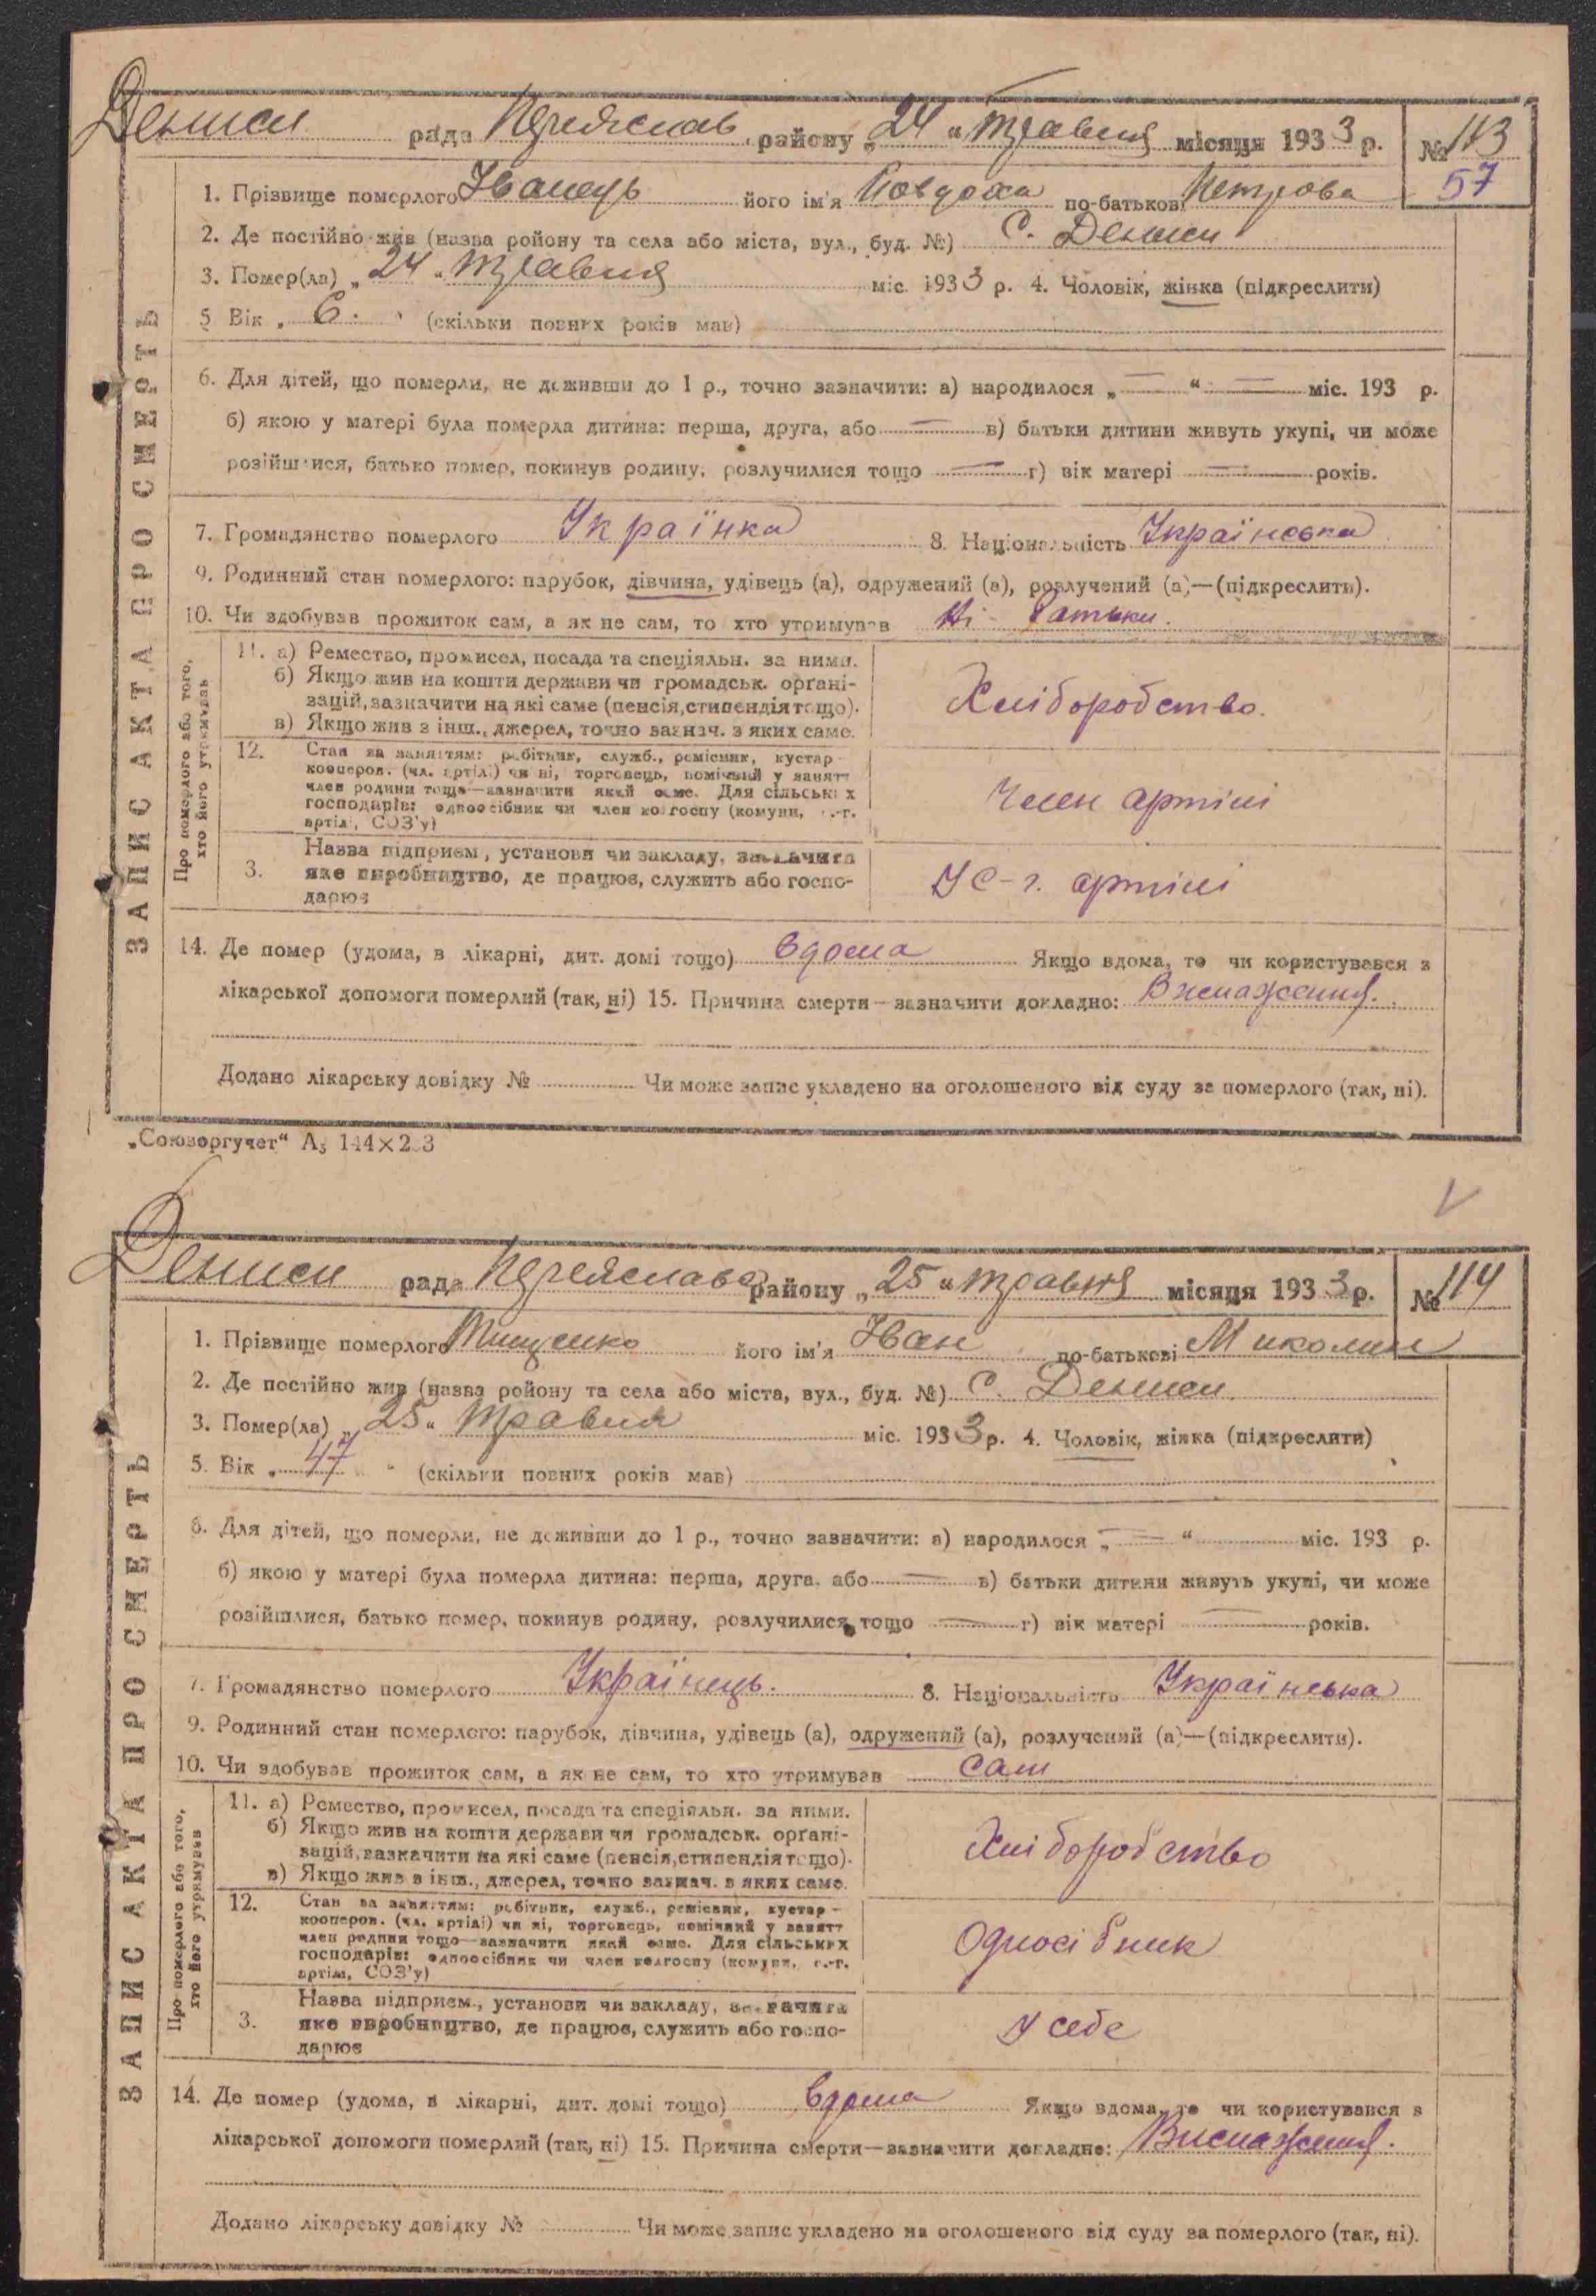 Дениси рада Переяслав району „24“ травня місяця 1933 р. № 113
57
1. Прізвище померлого Іванець його ім'я Повдоха по-батькові Петрова
2. Де постійно жив (назва ройону та села або міста, вул., буд. №) С. Дениси
3. Помер(ла) „24“ травня міс. 1933 р. 4. Чоловік, жінка (підкреслити)
5 Вік „ 6. “ (скільки повних років мав)
6. Для дітей, що померли, не доживши до 1 р., точно зазначити: а) народилося „ — “ — міс. 193 р.
б) якою у матері була померла дитина: перша, друга, або — в) батьки дитини живуть укупі, чи може
розійшлися, батько помер, покинув родину, розлучилися тощо — г) вік матері — років.
7. Громадянство померлого Українка 8. Національність Українська
9. Родинний стан померлого: парубок, дівчина, удівець (а), одружений (а), розлучений (а)—(підкреслити).
10. Чи здобував прожиток сам, а як не сам, то хто утримував Ні - батьки.
ЗАПИС АКТА ПРО СМЕРТЬ
Про померлого або того,
хто його утримував
11. а) Ремество, промисел, посада та спеціяльн. за ними.
б) Якщо жив на кошти держави чи громадськ. орґані-
зацій, зазначити на які саме (пенсія, стипендія тощо).
в) Якщо жив з інш., джерел, точно зазнач. з яких саме.
Хліборобство.
12. Стан за заняттям: робітник, служб., ремісник, кустар -
кооперов. (чл. артілі) чи ні, торговець, помічний у занятт
член родини тощо—зазначити який саме. Для сільських
господарів: одноосібник чи член колгоспу (комуни, с.-г.
артілі, СОЗ'у)
Член артілі
3. Назва підприєм., установи чи закладу, зазначити
яке виробництво, де працює, служить або госпо-
дарює
У С-г. артілі
14. Де помер (удома, в лікарні, дит. домі тощо) вдома Якщо вдома, то чи користувався з
лікарської допомоги померлий (так, ні) 15. Причина смерти—зазначити докладно: Виснаження.
Додано лікарську довідку № Чи може запис укладено на оголошеного від суду за померлого (так, ні).
„Союзоргучет“ А₅ 144×203
Дениси рада Переяслава району „25“ травня місяця 1933 р. № 114
1. Прізвище померлого Тищенко його ім'я Іван по-батькові Миколин
2. Де постійно жив (назва ройону та села або міста, вул., буд. №) С. Дениси.
3. Помер(ла) „25“ травня міс. 1933 р. 4. Чоловік, жінка (підкреслити)
5. Вік „ 47 “ (скільки повних років мав)
6. Для дітей, що померли, не доживши до 1 р., точно зазначити: а) народилося „ — “ міс. 193 р.
б) якою у матері була померла дитина: перша, друга, або — в) батьки дитини живуть укупі, чи може
розійшлися, батько помер, покинув родину, розлучилися тощо — г) вік матері — років.
7. Громадянство померлого Українець. 8. Національність Українська
9. Родинний стан померлого: парубок, дівчина, удівець (а), одружений (а), розлучений (а)—(підкреслити).
10. Чи здобував прожиток сам, а як не сам, то хто утримував сам
ЗАПИС АКТА ПРО СМЕРТЬ
Про померлого або того,
хто його утримував
11. а) Ремество, промисел, посада та спеціяльн. за ними.
б) Якщо жив на кошти держави чи громадськ. орґані-
зацій, зазначити на які саме (пенсія, стипендія тощо).
в) Якщо жив з інш., джерел, точно зазнач. з яких саме.
Хліборобство
12. Стан за заняттям: робітник, служб., ремісник, кустар -
кооперов. (чл. артілі) чи ні, торговець, помічний у занятт
член родини тощо—зазначити який саме. Для сільських
господарів: одноосібник чи член колгоспу (комуни, с.-г.
артілі, СОЗ'у)
Односібник
3. Назва підприєм., установи чи закладу, зазначити
яке виробництво, де працює, служить або госпо-
дарює
У себе
14. Де помер (удома, в лікарні, дит. домі тощо) вдома Якщо вдома, то чи користувався з
лікарської допомоги померлий (так, ні) 15. Причина смерти—зазначити докладно: Виснаження.
Додано лікарську довідку № Чи може запис укладено на оголошеного від суду за померлого (так, ні).